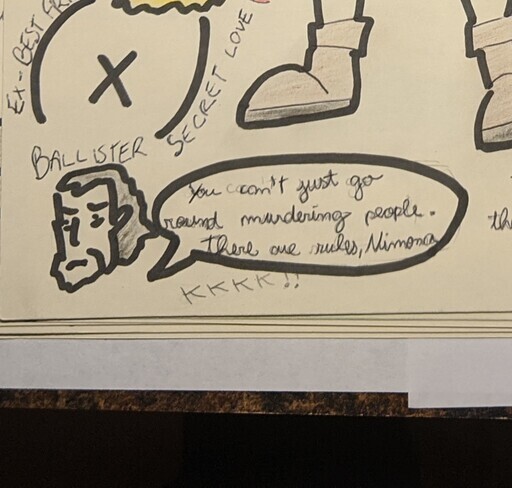 EX-BEST
SECRET LOVE
X
BALLISTER
You can't just go
round murdering people.
There are rules, Nimona
KKKK!!
th